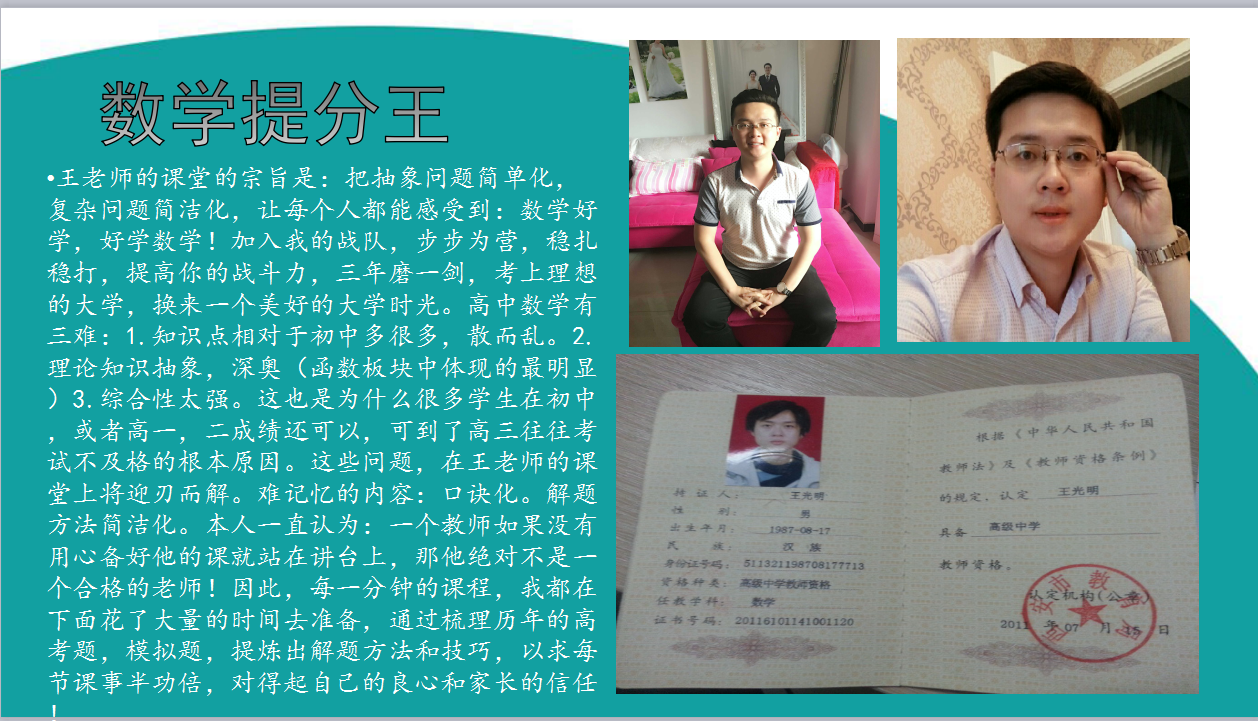 数学提分王
•王老师的课堂的宗旨是：把抽象问题简单化，
复杂问题简洁化，让每个人都能感受到：数学好
学，好学数学！加入我的战队，步步为营，稳扎
稳打，提高你的战斗力，三年磨一剑，考上理想
的大学，换来一个美好的大学时光。高中数学有
三难：1.知识点相对于初中多很多，散而乱。2.
理论知识抽象，深奥（函数板块中体现的最明显
）3.综合性太强。这也是为什么很多学生在初中
，或者高一，二成绩还可以，可到了高三往往考
试不及格的根本原因。这些问题，在王老师的课
堂上将迎刃而解。难记忆的内容：口诀化。解题
方法简洁化。本人一直认为：一个教师如果没有
用心备好他的课就站在讲台上，那他绝对不是一
个合格的老师！因此，每一分钟的课程，我都在
下面花了大量的时间去准备，通过梳理历年的高
考题，模拟题，提炼出解题方法和技巧，以求每
节课事半功倍，对得起自己的良心和家长的信任
！
持证人：王光明
性别：男
出生年月：1987-08-17
民族：汉族
身份证号码：511321198708177713
资格种类：高级中学教师资格
任教学科：数学
证书号码：20116101141001120
根据《中华人民共和国
教师法》及《教师资格条例》
的规定，认定 王光明
具备 高级中学
教师资格。
认定机构(公章)
2011 年 07 月 15 日
安市教育